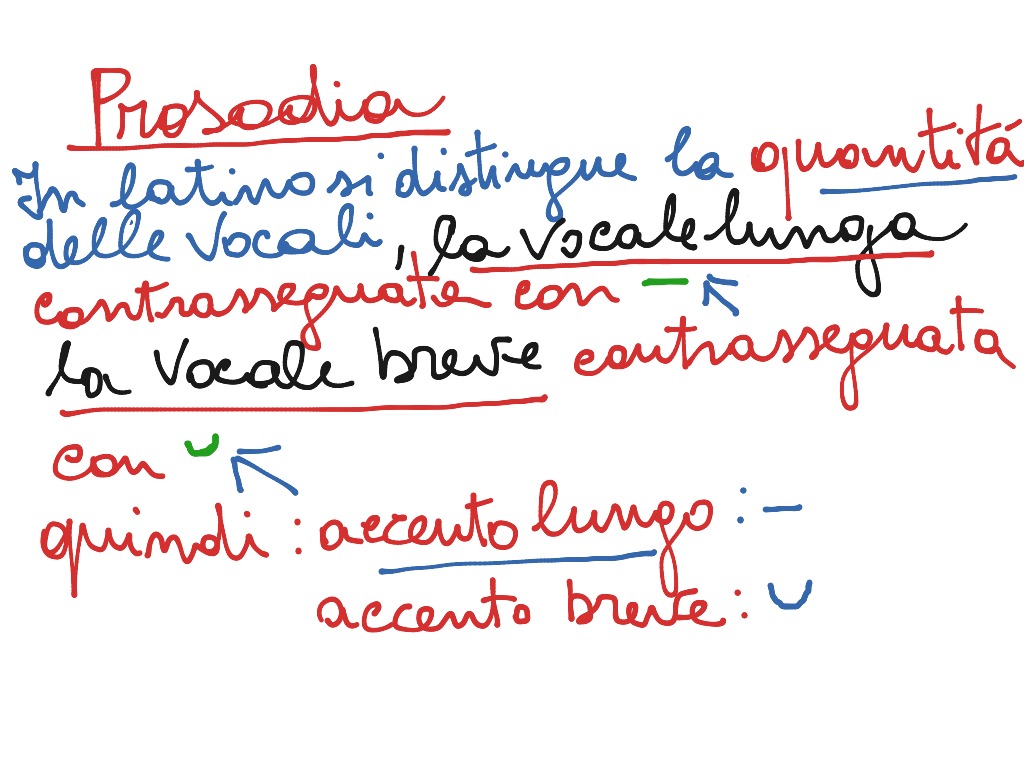 Prosodia
In latino si distingue la quantitá
delle vocali, la vocale lunga
contrassegnata con –
la vocale breve contrassegnata
con ᴗ
quindi: accento lungo: –
accento breve: ᴗ